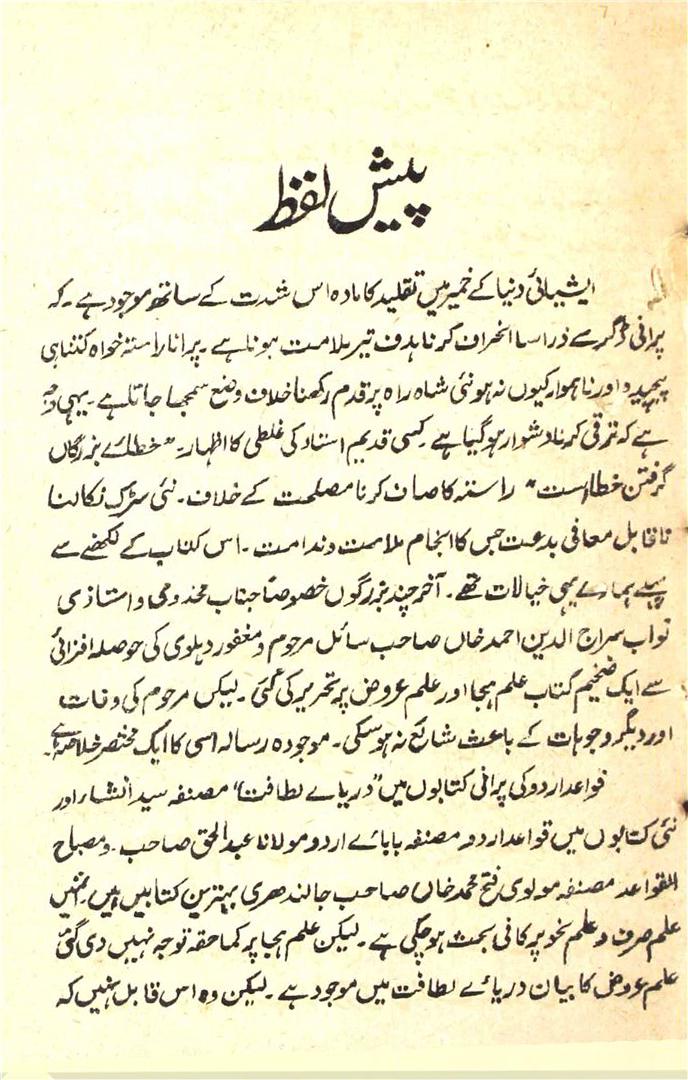 پیش لفظ
ایشیائی دنیا کے خمیر میں تقلید کا مادہ اس شدت کے ساتھ موجود ہے۔ کہ
پرانی ڈگر سے ذرا سا انحراف کرنا ہدف تیر ملامت ہونا ہے۔ پرانا راستہ خواہ کتنا ہی
پیچیدہ اور ناہموار کیوں نہ ہو نئی شاہ راہ پر قدم رکھنا خلاف وضع سمجھا جاتا ہے۔ یہی وجہ
ہے کہ ترقی کرنا دشوار ہو گیا ہے۔ کسی قدیم استاد کی غلطی کا اظہار۔ "خطائے بزرگاں
گرفتن خطا است" راستہ کا صاف کرنا مصلحت کے خلاف۔ نئی سڑک نکالنا
ناقابل معافی بدعت جس کا انجام ملامت و ندامت۔ اس کتاب کے لکھنے سے
پہلے ہمارے یہی خیالات تھے۔ آخر چند بزرگوں خصوصاً جناب مخدومی و استاذی
نواب سراج الدین احمد خاں صاحب سائل مرحوم و مغفور دہلوی کی حوصلہ افزائی
سے ایک ضخیم کتاب علم ہجا اور علم عروض پر تحریر کی گئی۔ لیکن مرحوم کی وفات
اور دیگر وجوہات کے باعث شایع نہ ہو سکی۔ موجودہ رسالہ اسی کا ایک مختصر خلاصہ ہے۔
قواعد اردو کی پرانی کتابوں میں "دریائے لطافت" مصنفہ سید انشاء اور
نئی کتابوں میں قواعد اردو مصنفہ بابائے اردو مولانا عبدالحق صاحب۔ و مصباح
القواعد مصنفہ مولوی فتح محمد خاں صاحب جالندھری بہترین کتابیں ہیں جنہیں
علم صرف و علم نحو پر کافی بحث ہو چکی ہے۔ لیکن علم ہجا پر کما حقہ توجہ نہیں دی گئی
علم عروض کا بیان دریائے لطافت میں موجود ہے۔ لیکن وہ اس قابل نہیں کہ